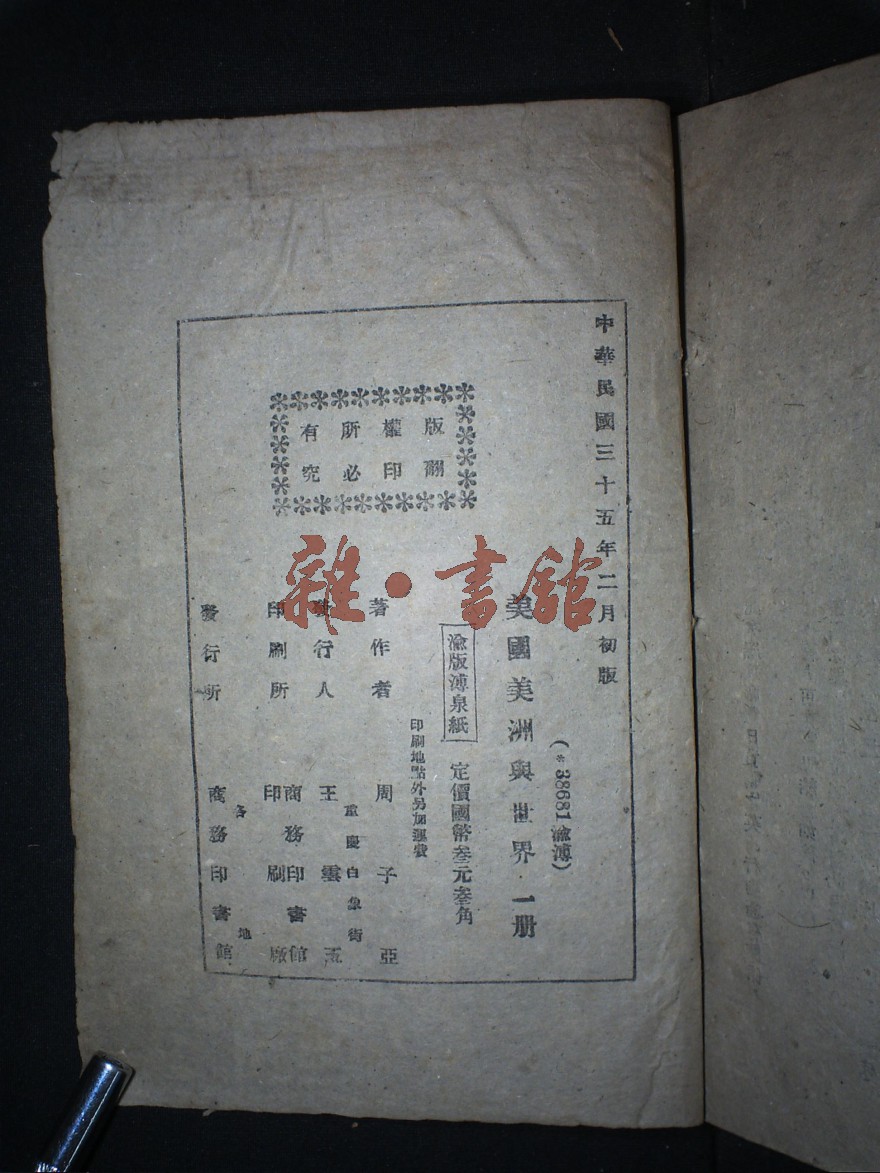 中華民國三十五年二月初版
(*38681渝溥)
美國美洲與世界 一册
渝版溥泉紙
定價國幣叁元叁角
印刷地點外另加運費
版權所有
翻印必究
著作者 周子亞
重慶白象街
發行人 王雲五
印刷所 商務印書館印刷廠
各地
發行所 商務印書館
雜·書舘